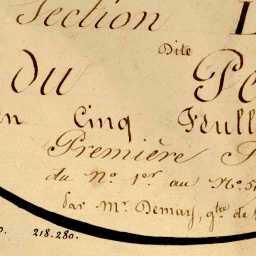 Section L
Dite
DU Pe
en Cinq Feuill
Première F
du N.º 1.er au N.º 5
Par M.r Demary, g.tre de
0. 218.280.